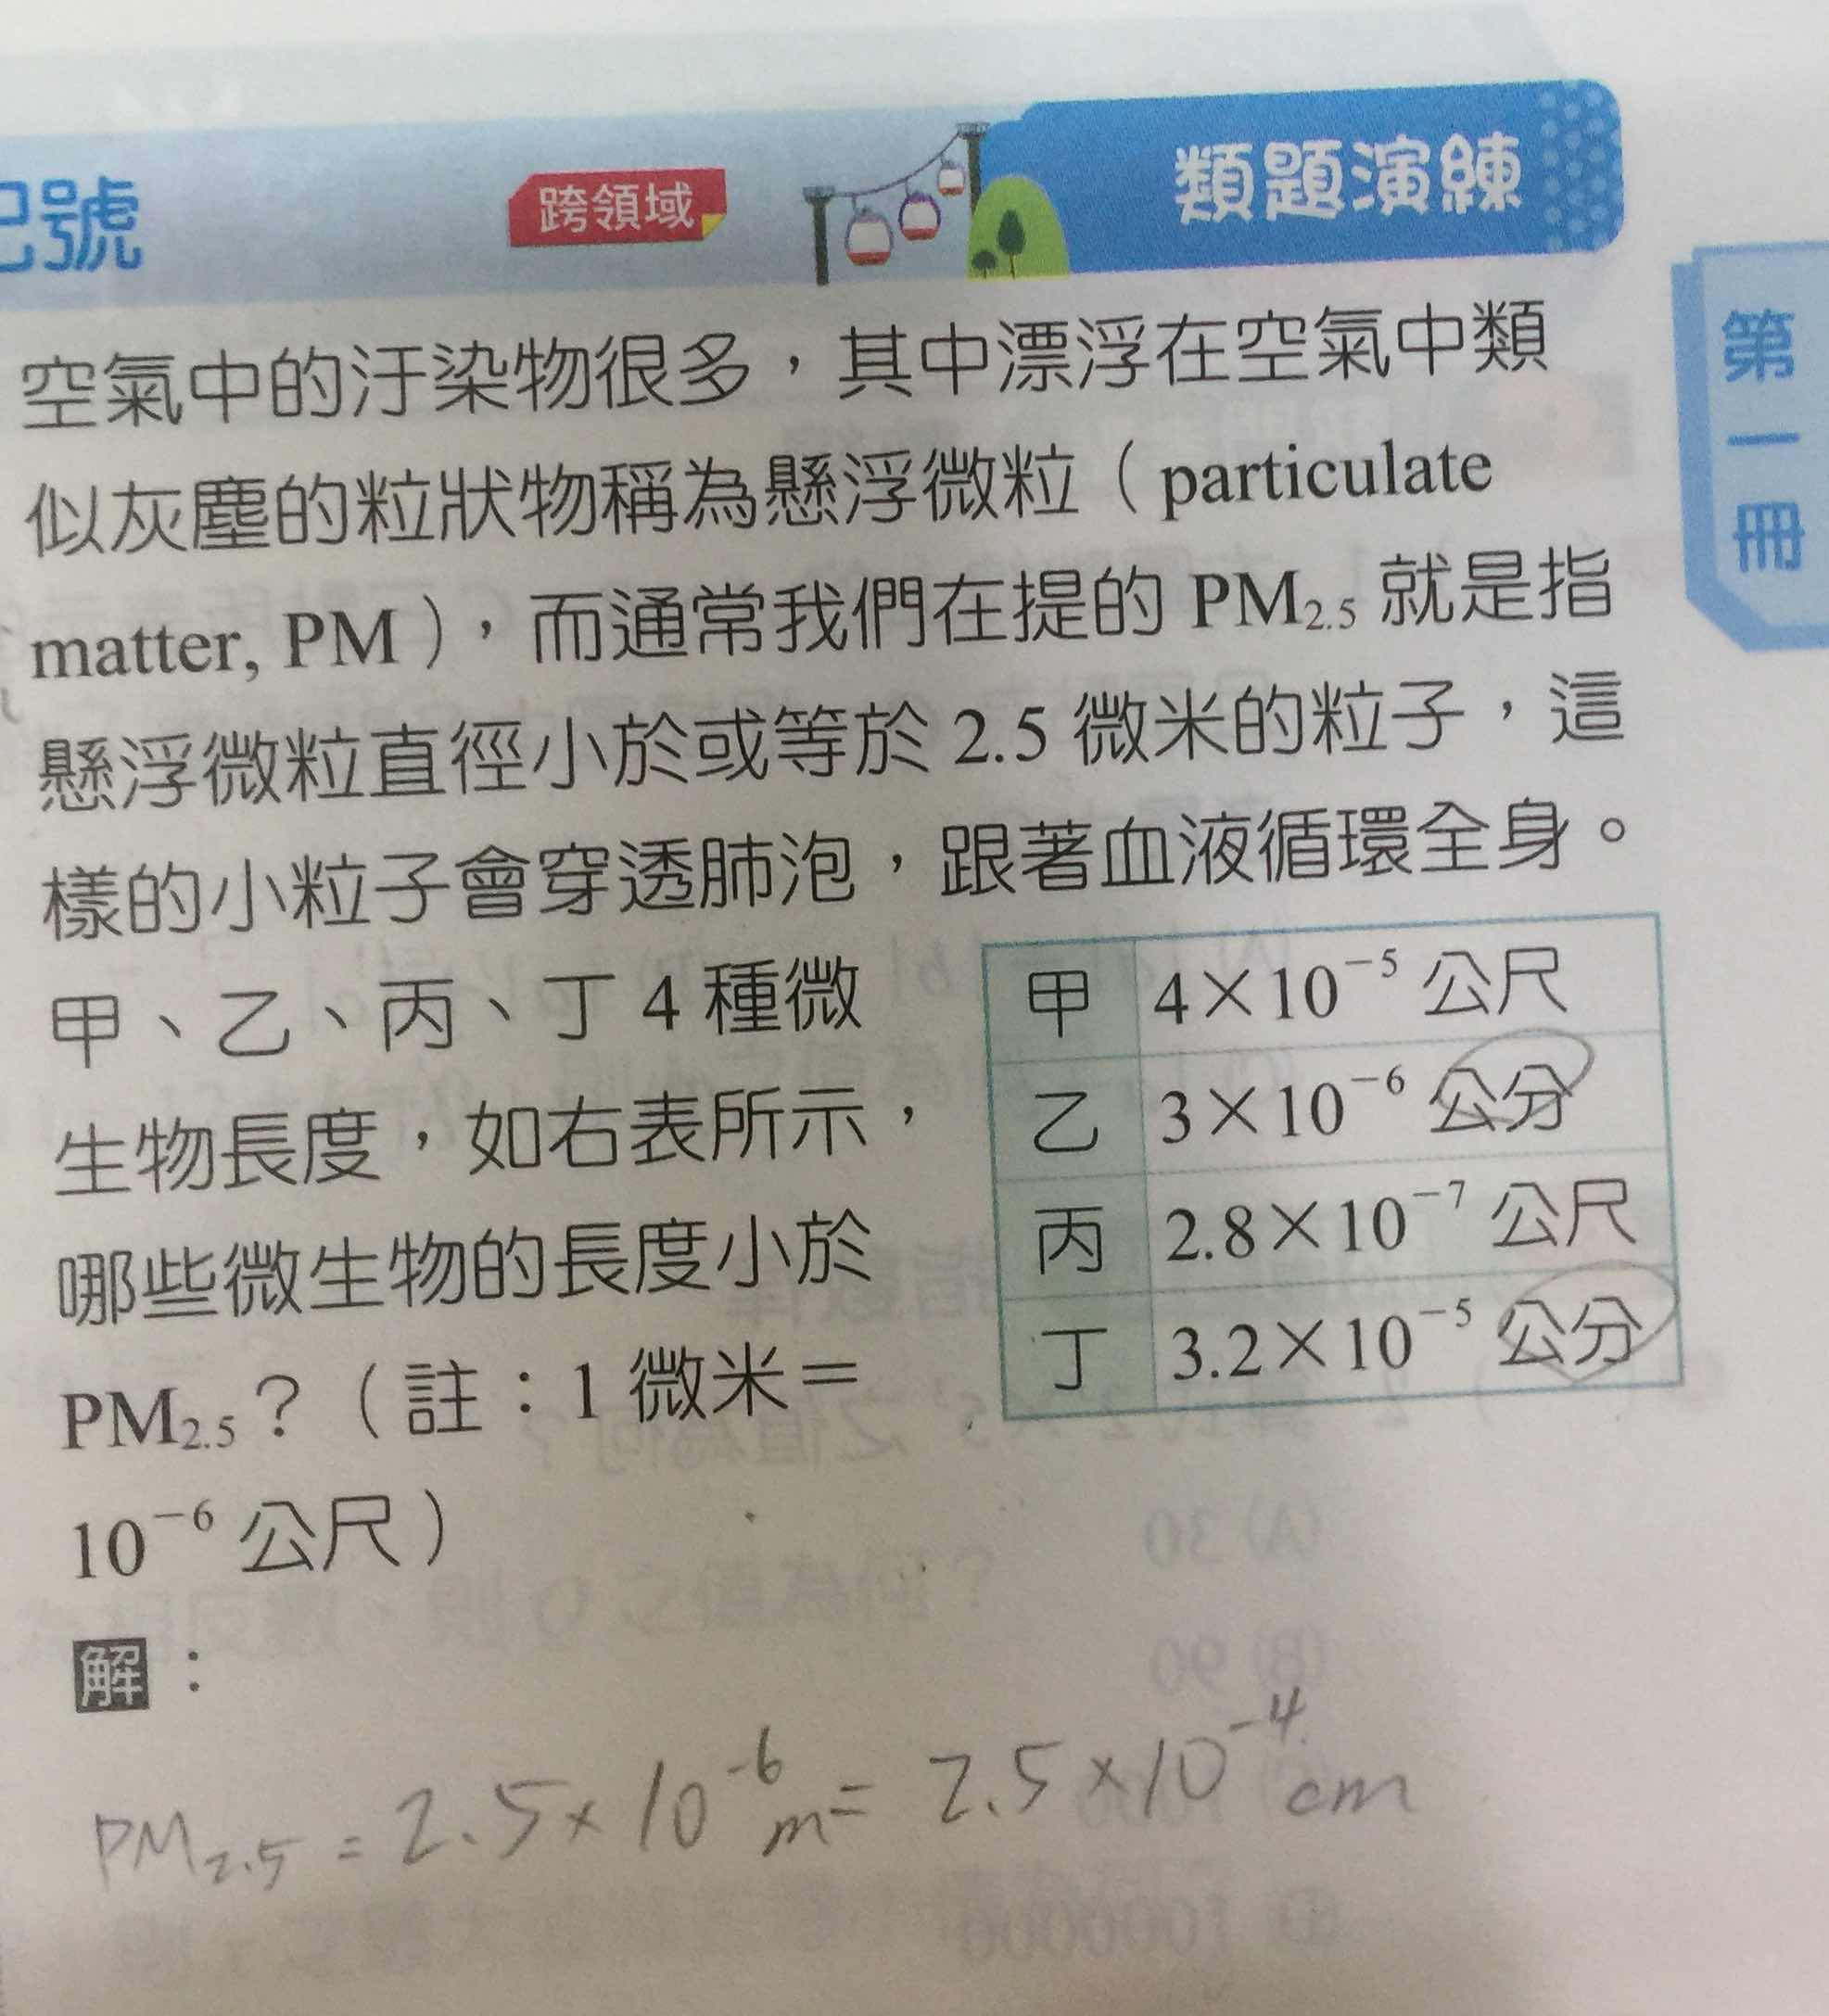 記號
跨領域
類題演練
第一冊
空氣中的汙染物很多，其中漂浮在空氣中類
似灰塵的粒狀物稱為懸浮微粒（particulate
matter, PM），而通常我們在提的 PM₂.₅ 就是指
懸浮微粒直徑小於或等於 2.5 微米的粒子，這
樣的小粒子會穿透肺泡，跟著血液循環全身。
甲、乙、丙、丁 4 種微
生物長度，如右表所示，
哪些微生物的長度小於
PM₂.₅？（註：1 微米＝
10⁻⁶ 公尺）
甲 4×10⁻⁵ 公尺
乙 3×10⁻⁶ 公分
丙 2.8×10⁻⁷ 公尺
丁 3.2×10⁻⁵ 公分
解：
PM₂.₅ = 2.5×10⁻⁶ m = 2.5×10⁻⁴ cm